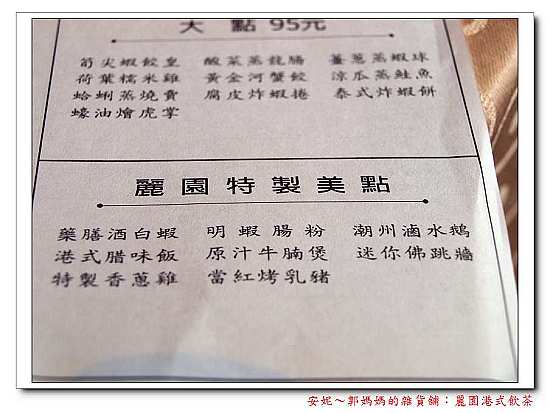 大 點 95元
筍尖蝦餃皇 酸菜蒸龍腸 薑蔥蒸蝦球
荷葉糯米雞 黃金河蟹餃 涼瓜蒸鮭魚
蛤蜊蒸燒賣 腐皮炸蝦捲 泰式炸蝦餅
蠔油燴虎掌
麗園特製美點
藥膳酒白蝦 明蝦腸粉 潮州滷水鵝
港式腊味飯 原汁牛腩煲 迷你佛跳牆
特製香蔥雞 當紅烤乳豬
安妮～郭媽媽的雜貨舖：麗園港式飲茶